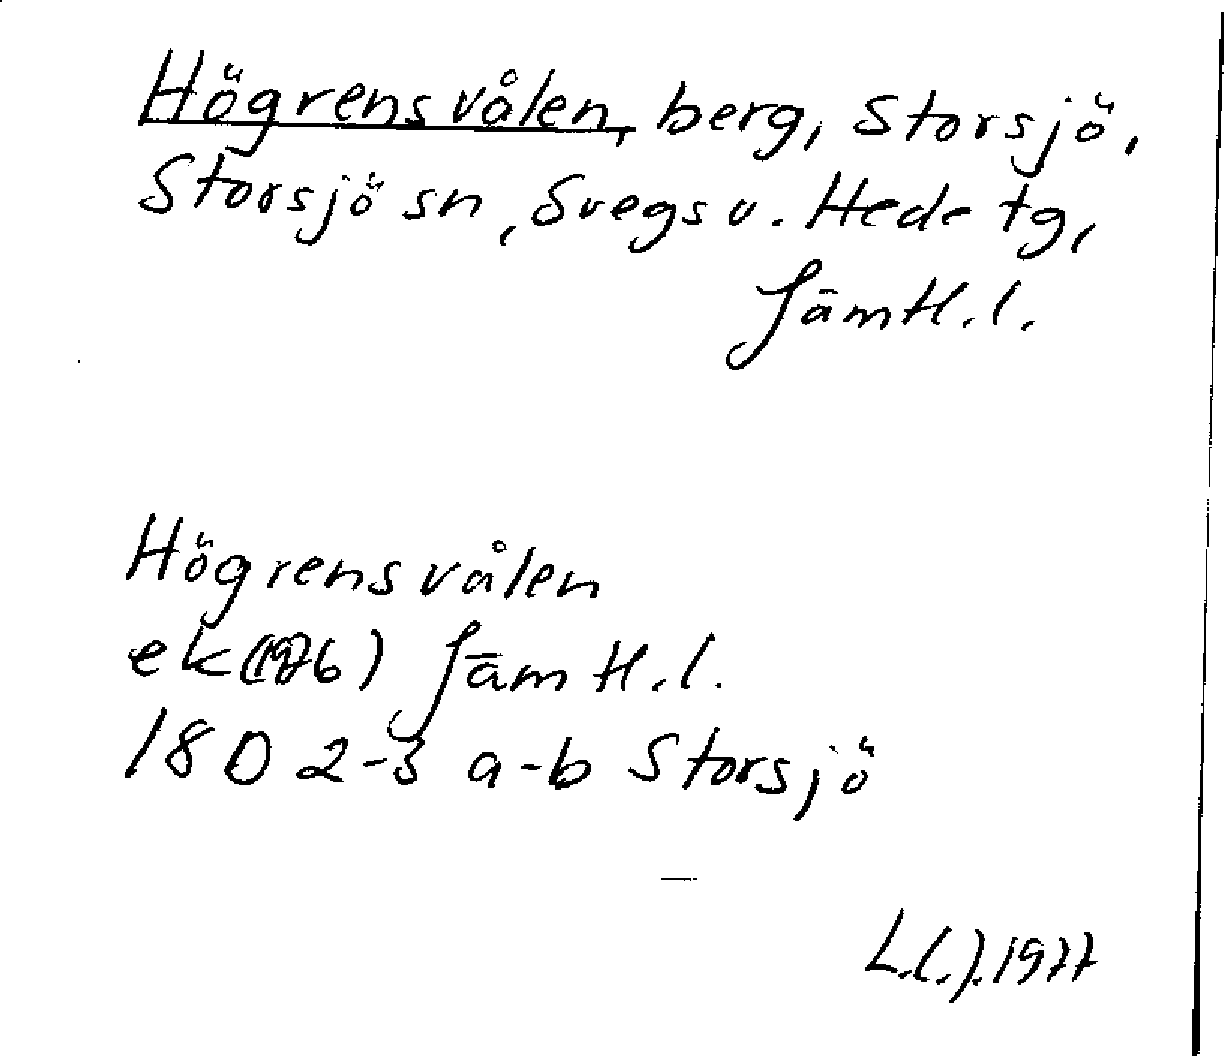 Högrensvålen, berg, Storsjö,
Storsjö sn, Svegs v. Hede tg,
Jämtl. l.
Högrensvålen
ek (1976) Jämtl. l.
18D 2-3 a-b Storsjö
1977